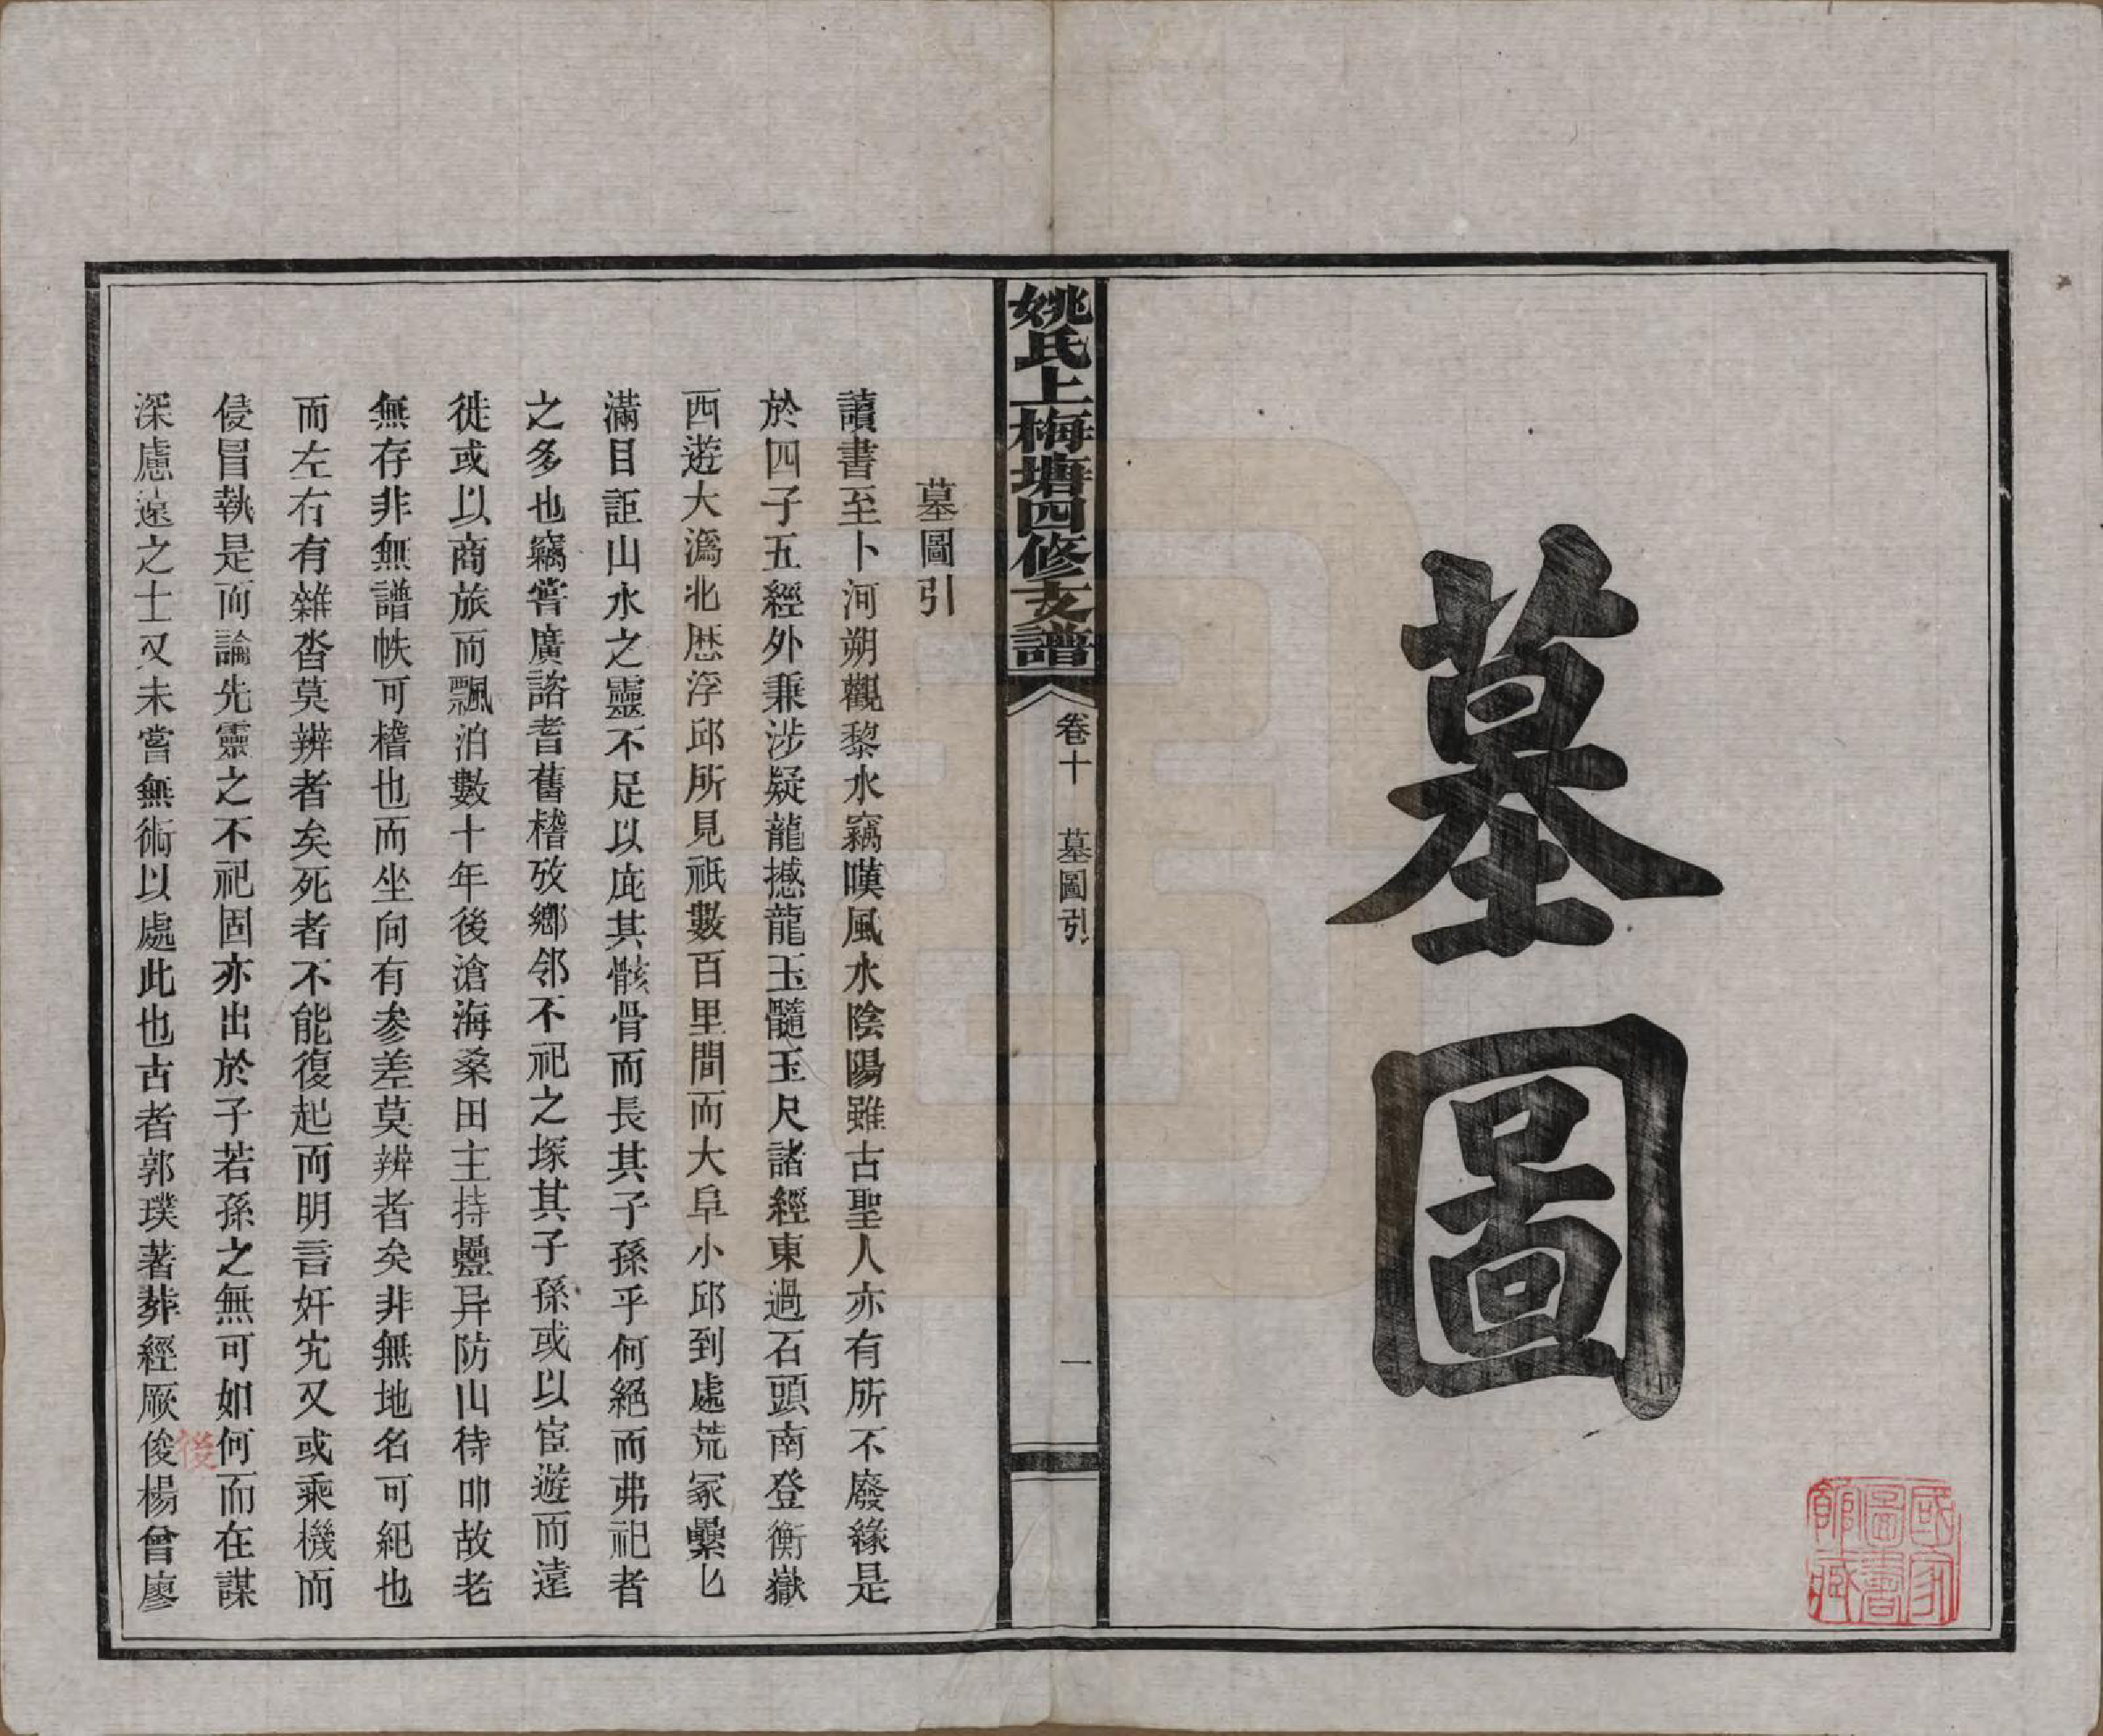 墓圖
國家
圖書
館藏
姚氏上梅塘四修支譜
卷十
墓圖引
一
墓圖引
讀書至卜河朔觀黎水竊嘆風水陰陽雖古聖人亦有所不廢緣是
於四子五經外兼涉疑龍撼龍玉髓玉尺諸經東過石頭南登衡嶽
西遊大潙北歷浮邱所見祇數百里間而大阜小邱到處荒冢纍匕
滿目詎山水之靈不足以庇其骸骨而長其子孫乎何絕而弗祀者
之多也竊嘗廣諮耆舊稽攷鄉邻不祀之塚其子孫或以宦遊而遠
徙或以商旅而飄泊數十年後滄海桑田主持疊异防山待叩故老
無存非無譜帙可稽也而坐向有參差莫辨者矣非無地名可紀也
而左右有雜沓莫辨者矣死者不能復起而明言奸宄又或乘機而
侵冒執是而論先靈之不祀固亦出於子若孫之無可如何而在謀
深慮遠之士又未嘗無術以處此也古者郭璞著葬經厥俊楊曾廖
後